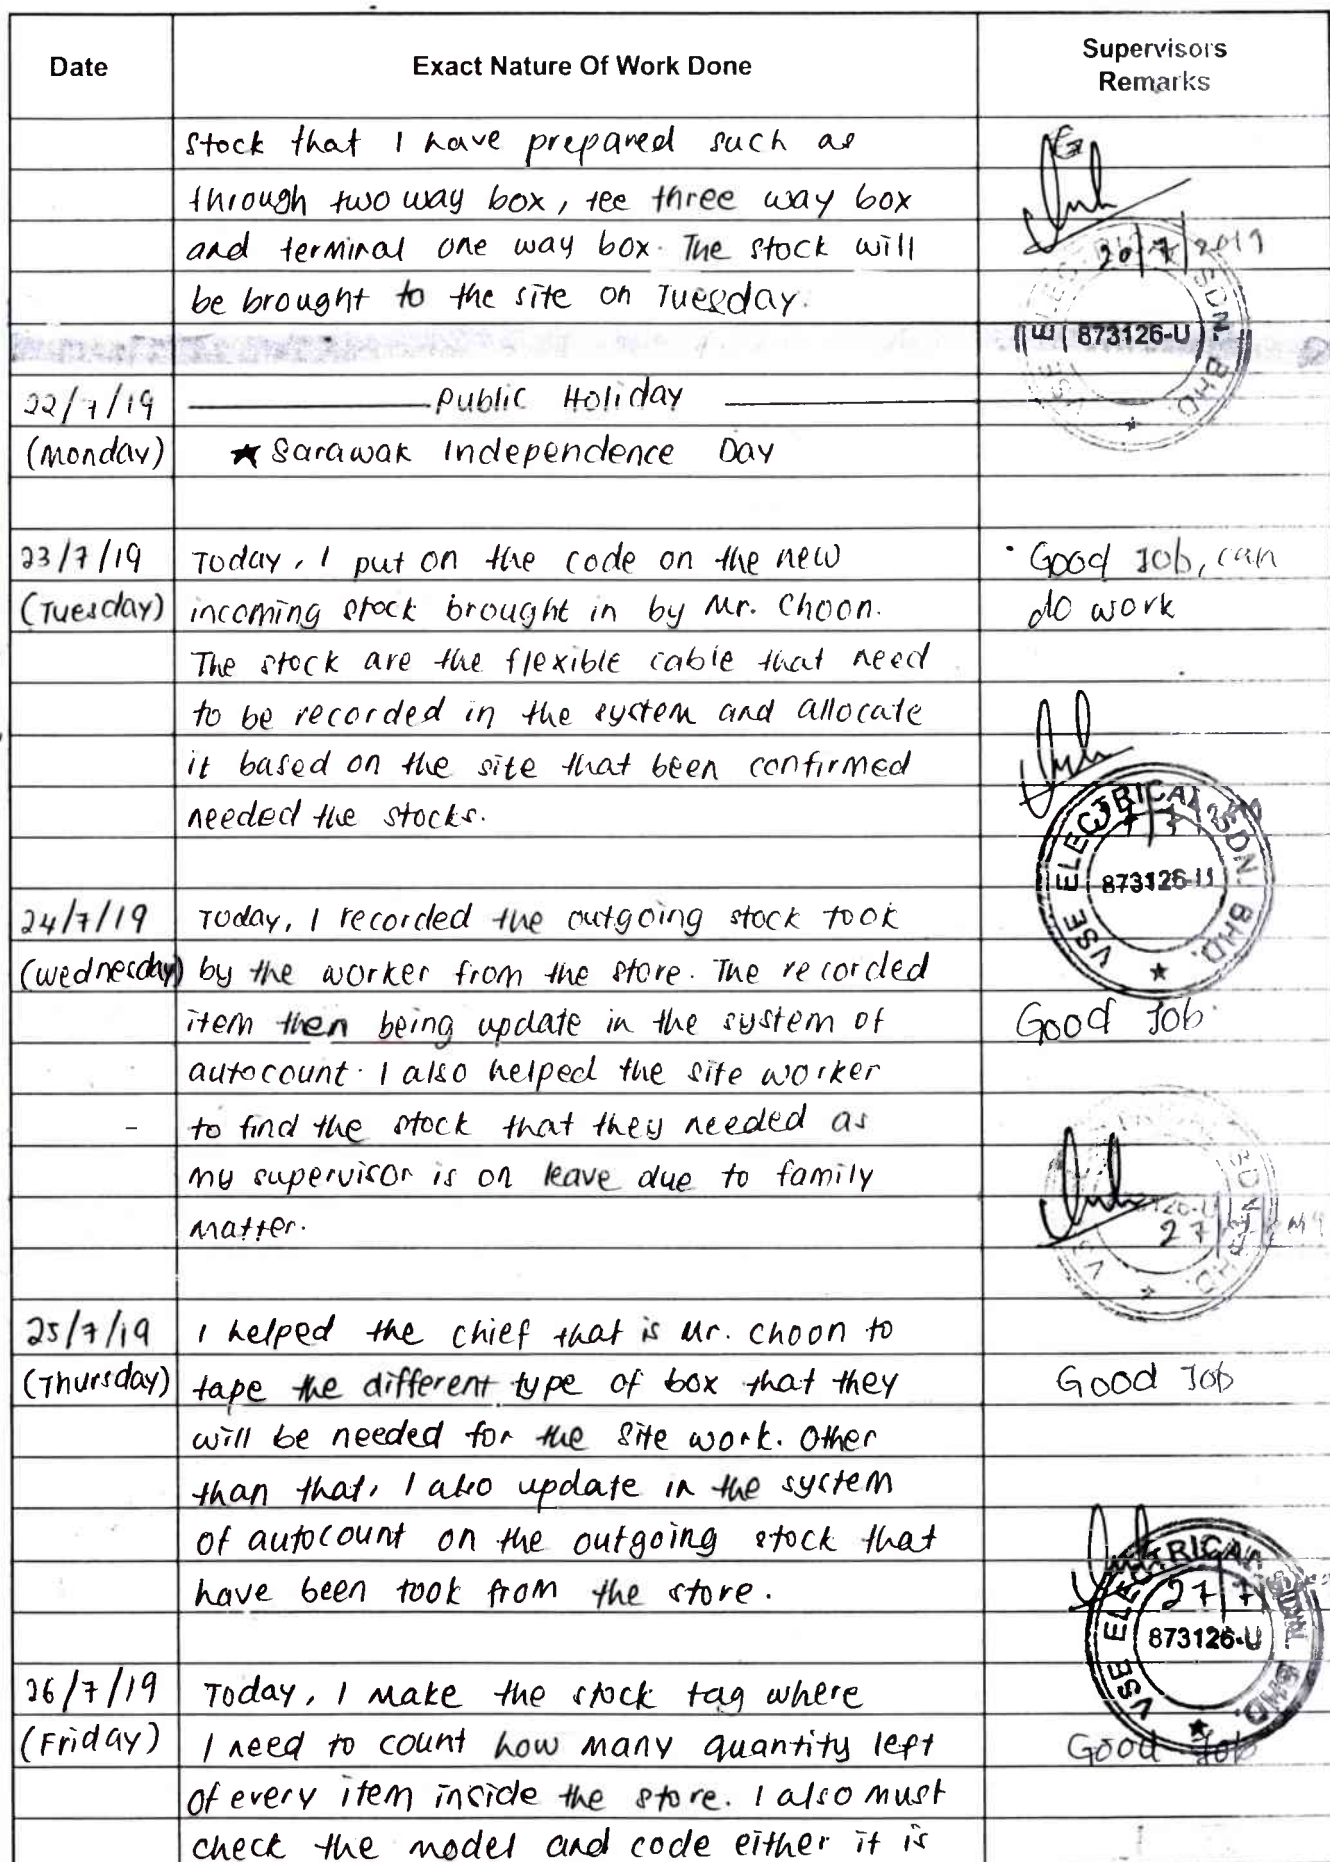 Date Exact Nature Of Work Done Supervisors Remarks
stock that I have prepared such as
through two way box, tee three way box
and terminal one way box. The stock will
20/7/2019
be brought to the site on Tuesday.
873126-U
22/7/19 Public Holiday
(Monday) ★ Sarawak Independence Day
23/7/19 Today, I put on the code on the new
· Good Job, can
(Tuesday) incoming stock brought in by Mr. Choon.
do work
The stock are the flexible cable that need
to be recorded in the system and allocate
it based on the site that been confirmed
needed the stocks.
VSE ELECTRICAL SDN. BHD.
873126-U
24/7/19 Today, I recorded the outgoing stock took
(Wednesday) by the worker from the store. The recorded
item then being update in the system of
Good Job.
autocount. I also helped the site worker
to find the stock that they needed as
my supervisor is on leave due to family
matter.
27
25/7/19 I helped the chief that is Mr. Choon to
(Thursday) tape the different type of box that they
Good Job
will be needed for the site work. Other
than that, I also update in the system
of autocount on the outgoing stock that
have been took from the store.
VSE ELECTRICAL SDN. BHD.
27/7
873126-U
26/7/19 Today, I make the stock tag where
(Friday) I need to count how many quantity left
Good Job
of every item inside the store. I also must
check the model and code either it is